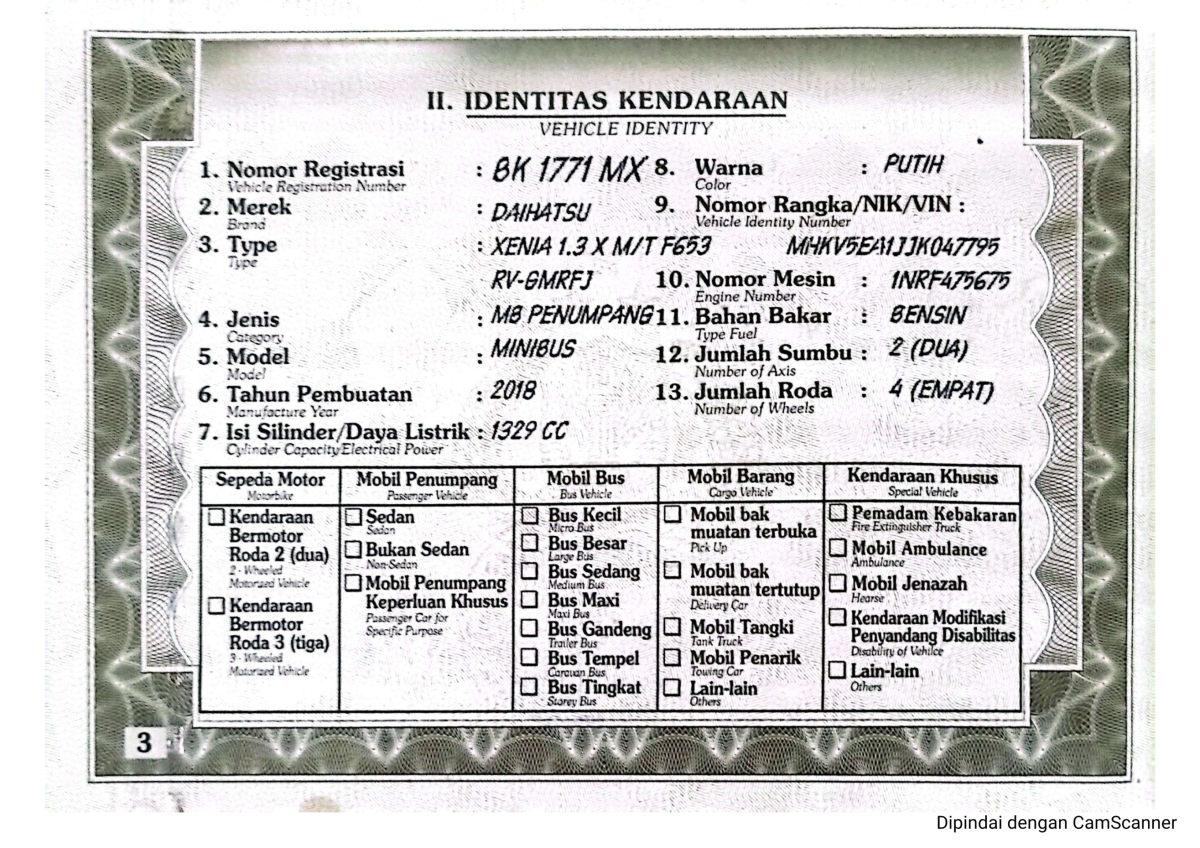 II. IDENTITAS KENDARAAN
VEHICLE IDENTITY
1. Nomor Registrasi : BK 1771 MX
Vehicle Registration Number
2. Merek : DAIHATSU
Brand
3. Type : XENIA 1.3 X M/T F653
Type
RV-GMRFJ
4. Jenis : MB PENUMPANG
Category
5. Model : MINIBUS
Model
6. Tahun Pembuatan : 2018
Manufacture Year
7. Isi Silinder/Daya Listrik : 1329 CC
Cylinder Capacity/Electrical Power
8. Warna : PUTIH
Color
9. Nomor Rangka/NIK/VIN :
Vehicle Identity Number
MHKV5EA1JJK047795
10. Nomor Mesin : 1NRF475675
Engine Number
11. Bahan Bakar : BENSIN
Type Fuel
12. Jumlah Sumbu : 2 (DUA)
Number of Axis
13. Jumlah Roda : 4 (EMPAT)
Number of Wheels
Sepeda Motor
Motorbike
Kendaraan
Bermotor
Roda 2 (dua)
2 - Wheeled
Motorized Vehicle
Kendaraan
Bermotor
Roda 3 (tiga)
3 - Wheeled
Motorized Vehicle
Mobil Penumpang
Passenger Vehicle
Sedan
Sedan
Bukan Sedan
Non-Sedan
Mobil Penumpang
Keperluan Khusus
Passenger Car for
Specific Purpose
Mobil Bus
Bus Vehicle
Bus Kecil
Micro Bus
Bus Besar
Large Bus
Bus Sedang
Medium Bus
Bus Maxi
Maxi Bus
Bus Gandeng
Trailer Bus
Bus Tempel
Caravan Bus
Bus Tingkat
Storey Bus
Mobil Barang
Cargo Vehicle
Mobil bak
muatan terbuka
Pick Up
Mobil bak
muatan tertutup
Delivery Car
Mobil Tangki
Tank Truck
Mobil Penarik
Towing Car
Lain-lain
Others
Kendaraan Khusus
Special Vehicle
Pemadam Kebakaran
Fire Extinguisher Truck
Mobil Ambulance
Ambulance
Mobil Jenazah
Hearse
Kendaraan Modifikasi
Penyandang Disabilitas
Disability of Vehilce
Lain-lain
Others
3
Dipindai dengan CamScanner